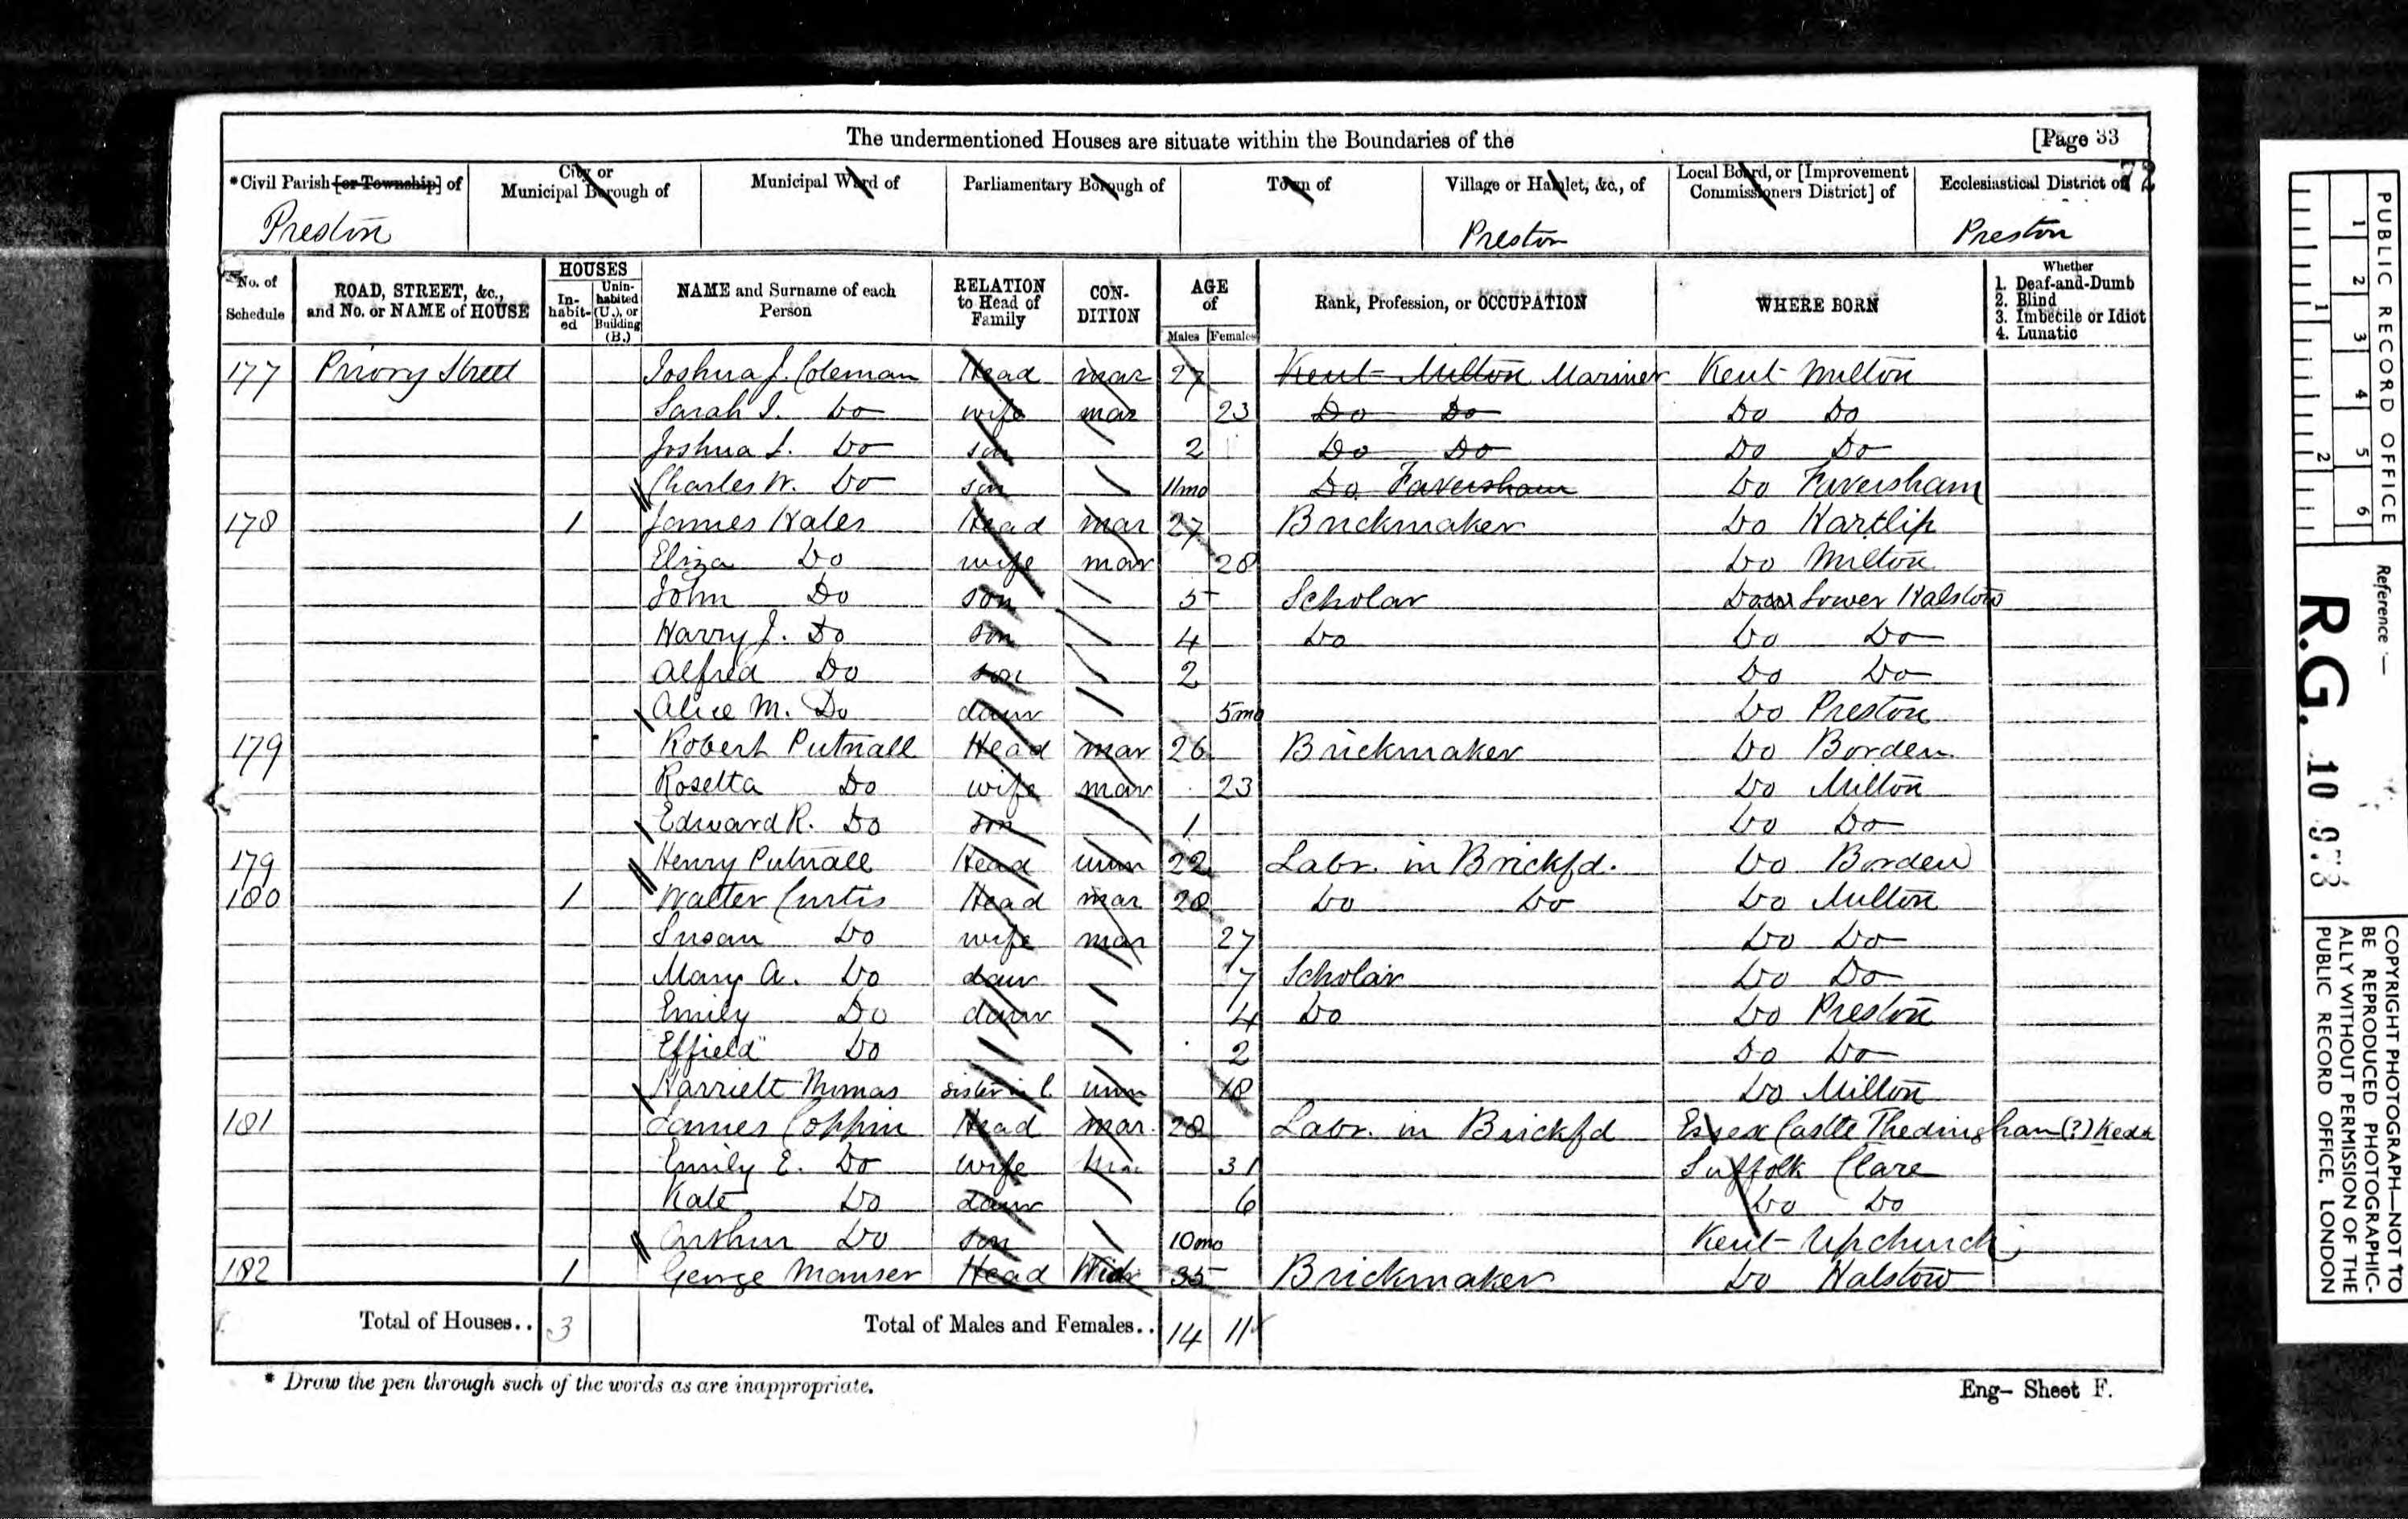 The undermentioned Houses are situate within the Boundaries of the [Page 33
*Civil Parish [or Township] of City or Municipal Borough of Municipal Ward of Parliamentary Borough of Town of Village or Hamlet, &c., of Local Board, or [Improvement Commissioners District] of Ecclesiastical District of 72
Preston Preston Preston
No. of Schedule ROAD, STREET, &c., and No. or NAME of HOUSE HOUSES In-habit-ed Unin-habited (U.), or Building (B.) NAME and Surname of each Person RELATION to Head of Family CON-DITION AGE of Males Females Rank, Profession, or OCCUPATION WHERE BORN Whether 1. Deaf-and-Dumb 2. Blind 3. Imbecile or Idiot 4. Lunatic
177 Priory Street Joshua J. Coleman Head mar 27 Kent Milton Mariner Kent Milton
Sarah J. Do wife mar 23 Do Do Do Do
Joshua J. Do son 2 Do Do Do Do
Charles W. Do son 11mo Do Faversham Do Faversham
178 1 James Hales Head mar 27 Brickmaker Do Hartlip
Eliza Do wife mar 28 Do Milton
John Do son 5 Scholar Do Lower Halstow
Harry J. Do son 4 Do Do Do
Alfred Do son 2 Do Do
Alice M. Do daur 5mo Do Preston
179 Robert Putnall Head mar 26 Brickmaker Do Borden
Rosetta Do wife mar 23 Do Milton
Edward R. Do son 1 Do Do
179 Henry Putnall Head unm 22 Labr. in Brickfd. Do Borden
180 1 Walter Curtis Head mar 28 Do Do Do Milton
Susan Do wife mar 27 Do Do
Mary A. Do daur 7 Scholar Do Do
Emily Do daur 4 Do Do Preston
"Effield" Do 2 Do Do
Harriett Thomas sister in l. unm 18 Do Milton
181 James Coppin Head mar. 28 Labr. in Brickfd Essex Castle Thedingham (?) Hedn
Emily E. Do wife 31 Suffolk Clare
Kate Do daur 6 Do Do
Arthur Do son 10mo Kent Upchurch
182 1 George Manser Head Widr 35 Brickmaker Do Halstow
Total of Houses.. 3 Total of Males and Females.. 14 11
* Draw the pen through such of the words as are inappropriate. Eng- Sheet F.
PUBLIC RECORD OFFICE
1 2 3 4 5 6
1 2
Reference :-
R.G. 10 973
COPYRIGHT PHOTOGRAPH—NOT TO
BE REPRODUCED PHOTOGRAPHIC-
ALLY WITHOUT PERMISSION OF THE
PUBLIC RECORD OFFICE, LONDON